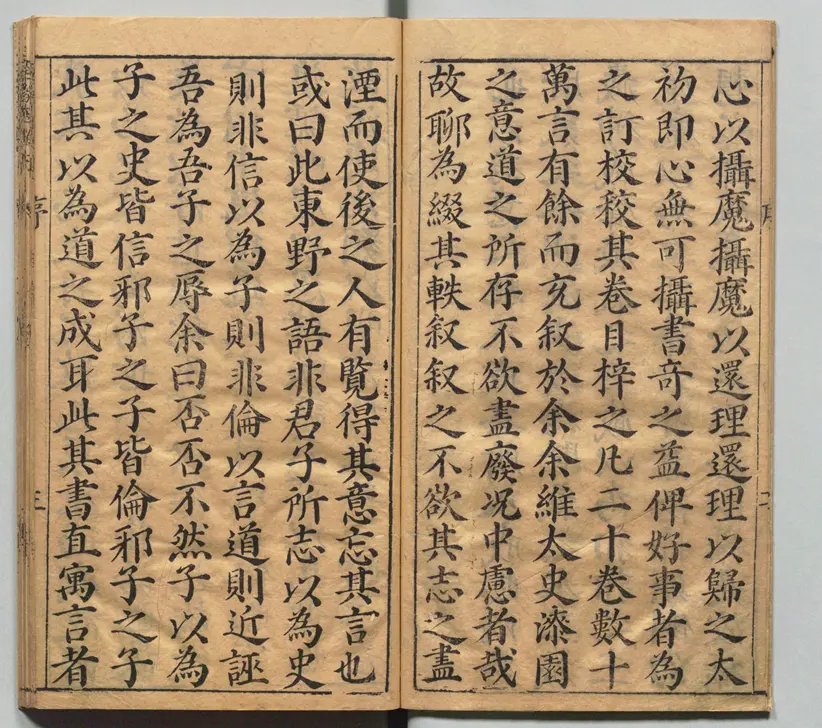 心以攝魔攝魔以還理還理以歸之太
初即心無可攝書奇之益俾好事者為
之訂校校其卷目梓之凡二十卷數十
萬言有餘而充叙於余余維太史漆園
之意道之所存不欲盡廢况中慮者哉
故聊為綴其軼叙叙之不欲其志之盡
湮而使後之人有覽得其意忘其言也
或曰此東野之語非君子所志以為史
則非信以為子則非倫以言道則近誣
吾為吾子之辱余曰否否不然子以為
子之史皆信邪子之子皆倫邪子之子
此其以為道之成耳此其書直寓言者
序
三